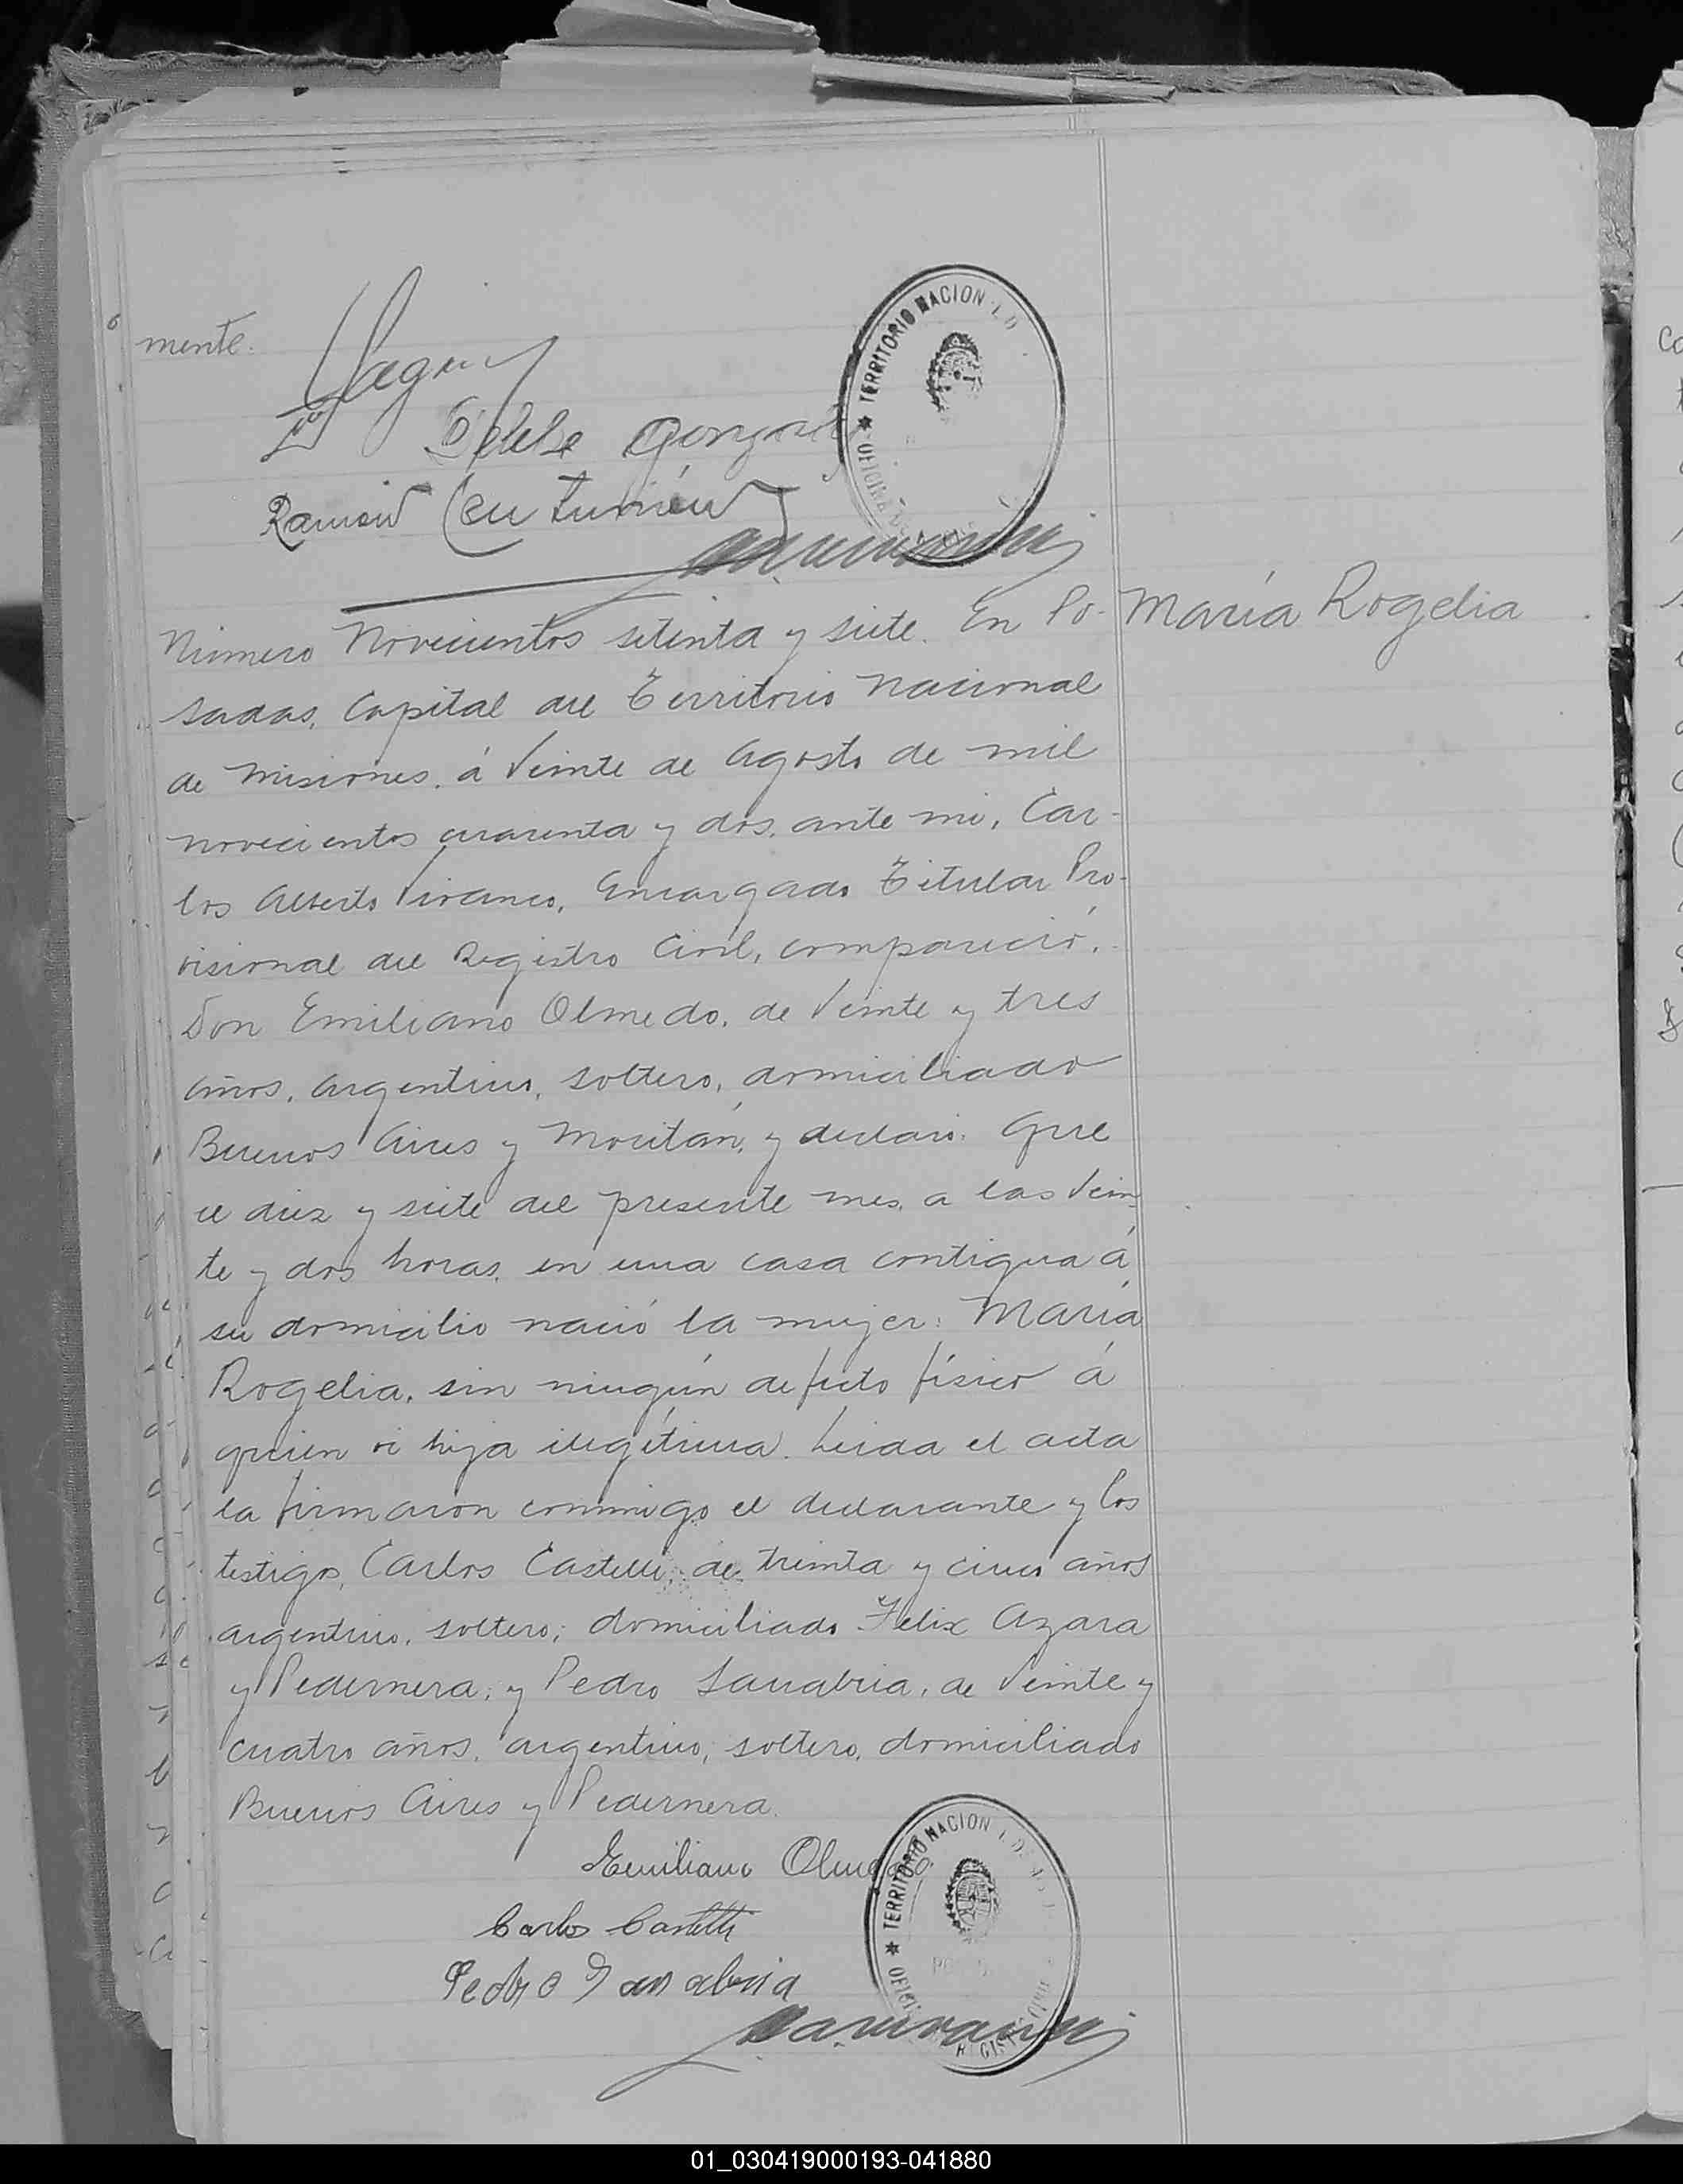 mente.
Ramón Centurión
Número Novecientos setenta y siete. En Po- María Rogelia
sadas, Capital del Territorio Nacional
de Misiones, á veinte de Agosto de mil
novecientos cuarenta y dos, ante mi, Car-
los Alberto Vivanco, Encargado Titular Pro-
visional del Registro Civil, compareció,
Don Emiliano Olmedo, de veinte y tres
años, argentino, soltero, domiciliado
Buenos Aires y Moritán, y declaró: Que
el diez y siete del presente mes, a las vein-
te y dos horas, en una casa contigua á
su domicilio nació la mujer: María
Rogelia, sin ningún defecto físico á
quien vi hija ilegítima. Leida el acta
la firmaron conmigo el declarante y los
testigos, Carlos Castelli, de treinta y cinco años
argentino, soltero, domiciliado Felix Azara
y Pedernera; y Pedro Sanabria, de veinte y
cuatro años, argentino, soltero, domiciliado
Buenos Aires y Pedernera.
Emiliano Olmedo.
Carlos Castelli
Pedro Sanabria
TERRITORIO NACION
01_030419000193-041880